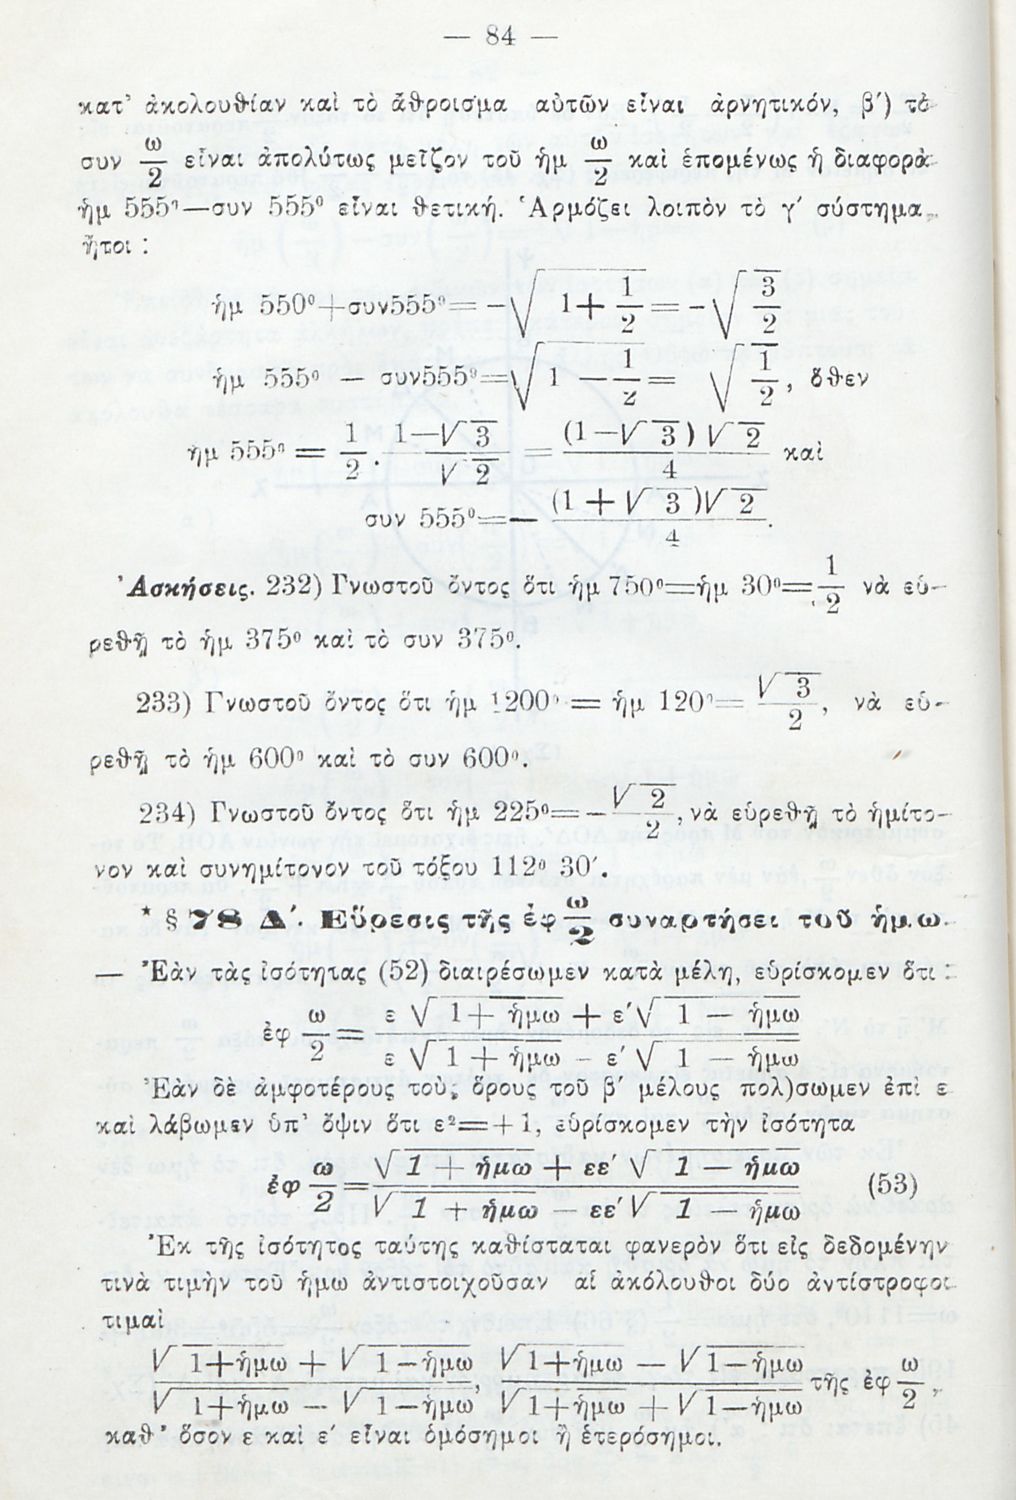 — 84 —
κατ’ ἀκολουθίαν καὶ τὸ ἄθροισμα αὐτῶν εἶναι ἀρνητικόν, β′) τὸ
συν ω/2 εἶναι ἀπολύτως μεῖζον τοῦ ἡμ ω/2 καὶ ἑπομένως ἡ διαφορὰ
ἡμ 555⁰—συν 555⁰ εἶναι θετική. Ἁρμόζει λοιπὸν τὸ γ′ σύστημα,
ἤτοι :
ἡμ 550⁰+συν555⁰= -√(1+ 1/2) = -√(3/2)
ἡμ 555⁰ — συν555⁰=√(1 — 1/2) = √(1/2), ὅθεν
ημ 555⁰ = 1/2 . (1—√3)/√2 = ((1—√3)√2)/4 καὶ
συν 555⁰=— ((1+√3)√2)/4.
Ἀσκήσεις. 232) Γνωστοῦ ὄντος ὅτι ἡμ 750⁰=ἡμ 30⁰= 1/2 νὰ εὑ-
ρεθῇ τὸ ἡμ 375⁰ καὶ τὸ συν 375⁰.
233) Γνωστοῦ ὄντος ὅτι ἡμ 1200⁰ = ἡμ 120⁰= √3/2, νὰ εὑ-
ρεθῇ τὸ ἡμ 600⁰ καὶ τὸ συν 600⁰.
234) Γνωστοῦ ὄντος ὅτι ἡμ 225⁰= — √2/2, νὰ εὑρεθῇ τὸ ἡμίτο-
νον καὶ συνημίτονον τοῦ τόξου 112⁰ 30′.
* § 78 Δ′. Εὕρεσις τῆς ἐφ ω/2 συναρτήσει τοῦ ἡμω.
— Ἐὰν τὰς ἰσότητας (52) διαιρέσωμεν κατὰ μέλη, εὑρίσκομεν ὅτι :
ἐφ ω/2 = (ε √(1+ἡμω) + ε′√(1 — ἡμω))/(ε √(1 + ἡμω) - ε′√(1 — ἡμω))
Ἐὰν δὲ ἀμφοτέρους τοὺς ὅρους τοῦ β′ μέλους πολ)σωμεν ἐπὶ ε
καὶ λάβωμεν ὑπ’ ὄψιν ὅτι ε²=+1, εὑρίσκομεν τὴν ἰσότητα
ἐφ ω/2 = (√(1 + ἡμω) + εε′ √(1 — ἡμω))/(√(1 + ἡμω) — εε′ √(1 — ἡμω)) (53)
Ἐκ τῆς ἰσότητος ταύτης καθίσταται φανερὸν ὅτι εἰς δεδομένην
τινὰ τιμὴν τοῦ ἡμω ἀντιστοιχοῦσαν αἱ ἀκόλουθοι δύο ἀντίστροφοι
τιμαὶ
(√(1+ἡμω) + √(1—ἡμω))/(√(1+ἡμω) — √(1—ἡμω)), (√(1+ἡμω) — √(1—ἡμω))/(√(1+ἡμω) + √(1—ἡμω)) τῆς ἐφ ω/2,
καθ’ ὅσον ε καὶ ε′ εἶναι ὁμόσημοι ἢ ἑτερόσημοι.